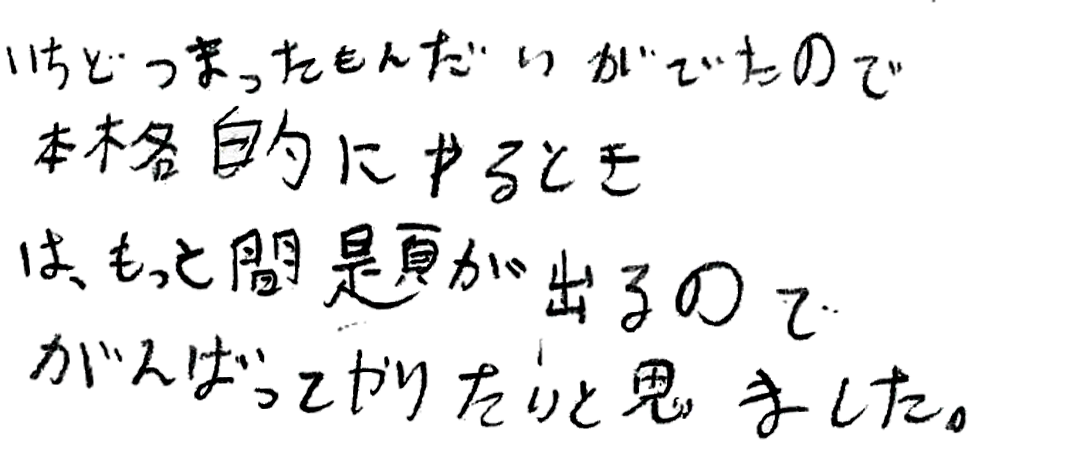 いちどつまったもんだいがでたので
本格的にやるとき
は、もっと間題が出るので
がんばってやりたいと思ました。